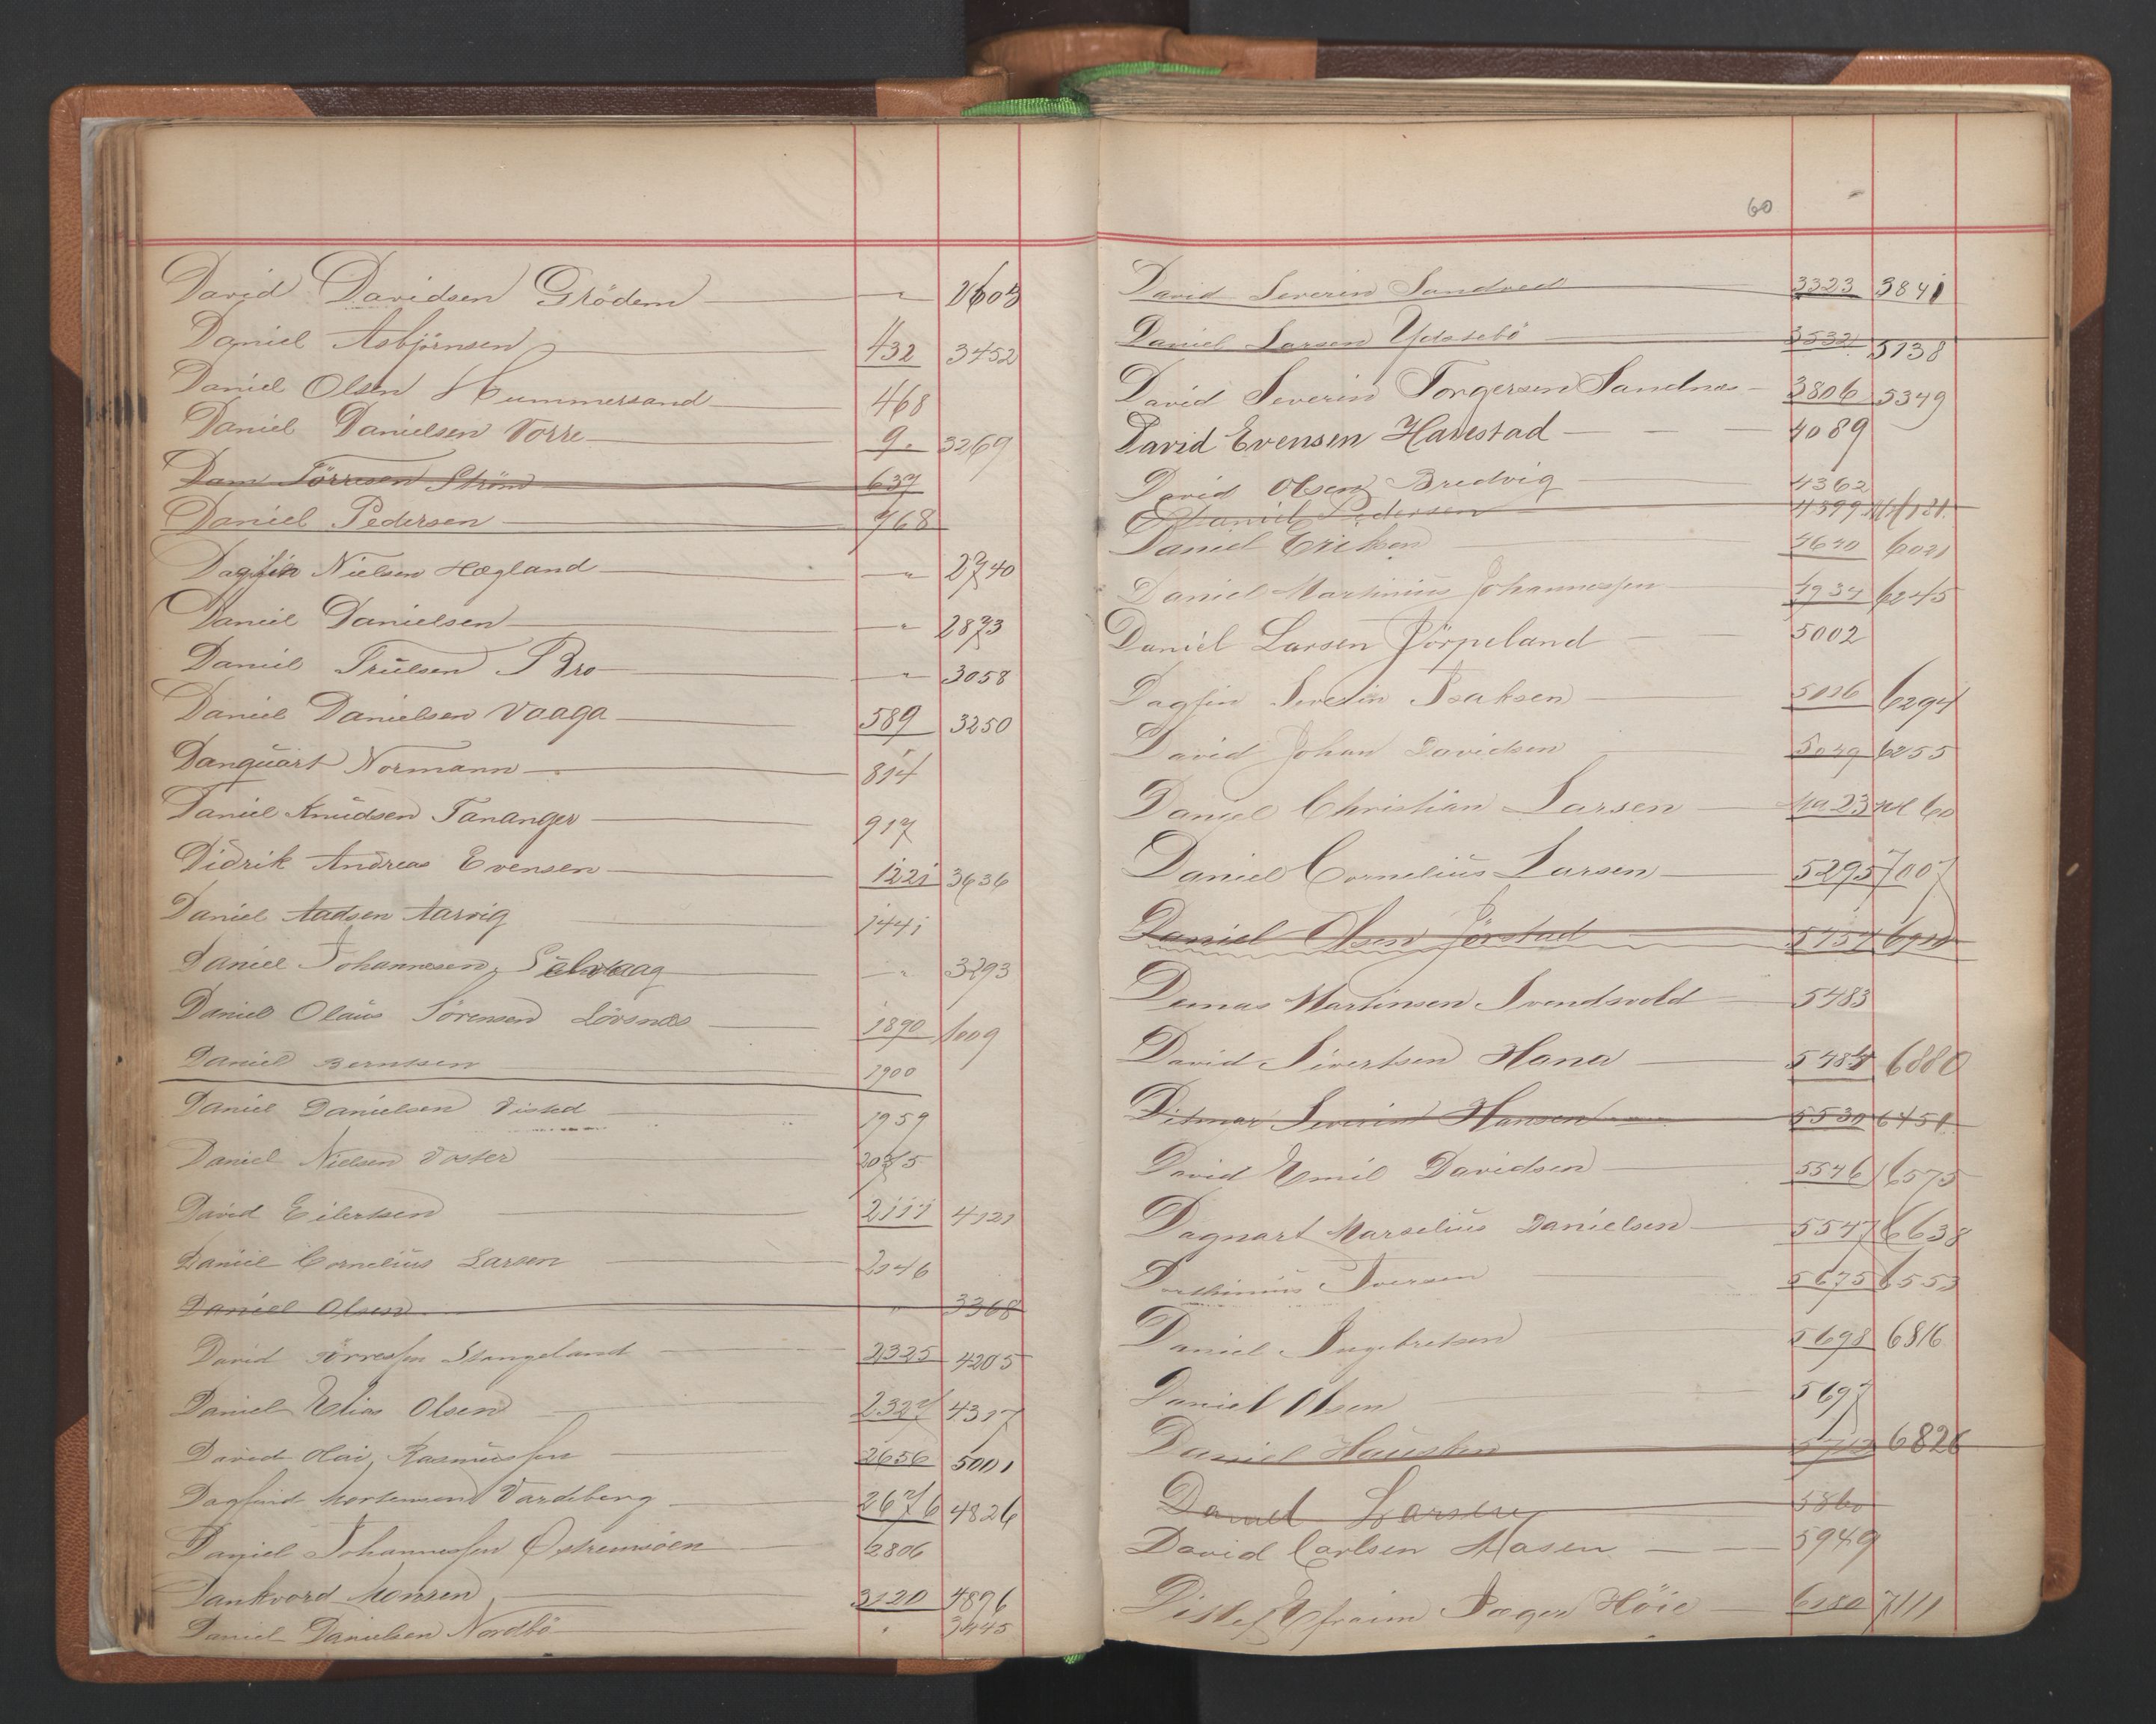 David Davidsen Grödem — " 2603
Daniel Asbjörnsen — 432 3452
Daniel Olsen Hummersand — 468
Daniel Danielsen Vorre — 9. 3269
Dam Törresen Ström — 637
Daniel Pedersen — 768
Dagfin Nielsen Hægland — " 2740
Daniel Danielsen — " 2873
Daniel Trulsen Bro — " 3058
Daniel Danielsen Vaaga — 589 3250
Danquart Normann — 814
Daniel Knudsen Tananger — 917
Didrik Andreas Evensen — 1221 3636
Daniel Aadsen Aarvig 1441
Daniel Johannesen Salvaag — " 3293
Daniel Olaus Sörensen Lövsnæs — 1890 1009
Daniel Berntsen — 1900
Daniel Danielsen Visted — 1959
Daniel Nielsen Voster — 2075
David Eilertsen — 2111 4121
Daniel Cornelius Larsen — 2146
Daniel Olsen — " 3368
David Törressen Stangeland — 2325 4205
Daniel Elias Olsen — 2327 4317
David Olai Rasmussen — 2656 5001
Dagfind Mortensen Vardeberg — 2676 4826
Daniel Johannessen Östremsöen — 2806
Dankvord Monsen — 3120 4896
Daniel Danielsen Nordbö — " 3445
60
David Severin Sandved — 3323 3841
Daniel Larsen — 3532 5138
David Severin Torgersen Sandnæs — 3806 5349
David Evensen Havestad — — — 4089
David Olsen Bredvig — 4362
Daniel Pedersen — 4599
Daniel Eriksen — 4640 6021
Daniel Martinius Johannessen — 4934 6245
Daniel Larsen Jörpeland — — 5002
Dagfin Severin Isaksen — 5016 6294
David Johan Davidsen — 5049 6255
Daniel Christian Larsen — 23 60
Daniel Cornelius Larsen — 5295 7007
Daniel Olsen Jörstad — 5454
Demas Martinsen Svendsvold — 5483
David Sivertsen Hana — 5484 6880
Ditmar Severin Hansen — 5530 6451
David Emil Davidsen — 5546 6575
Dagnart Marselius Danielsen — 5547 6638
Dorthinius Iversen — 5675 6553
Daniel Ingebretsen — 5698 6816
Daniel Olsen — 5697
Daniel Hausken — 6826
Daniel Larsen — 5860
David Carlsen Aasen — — 5949
Efraim Jæger Höie — 6180 7111